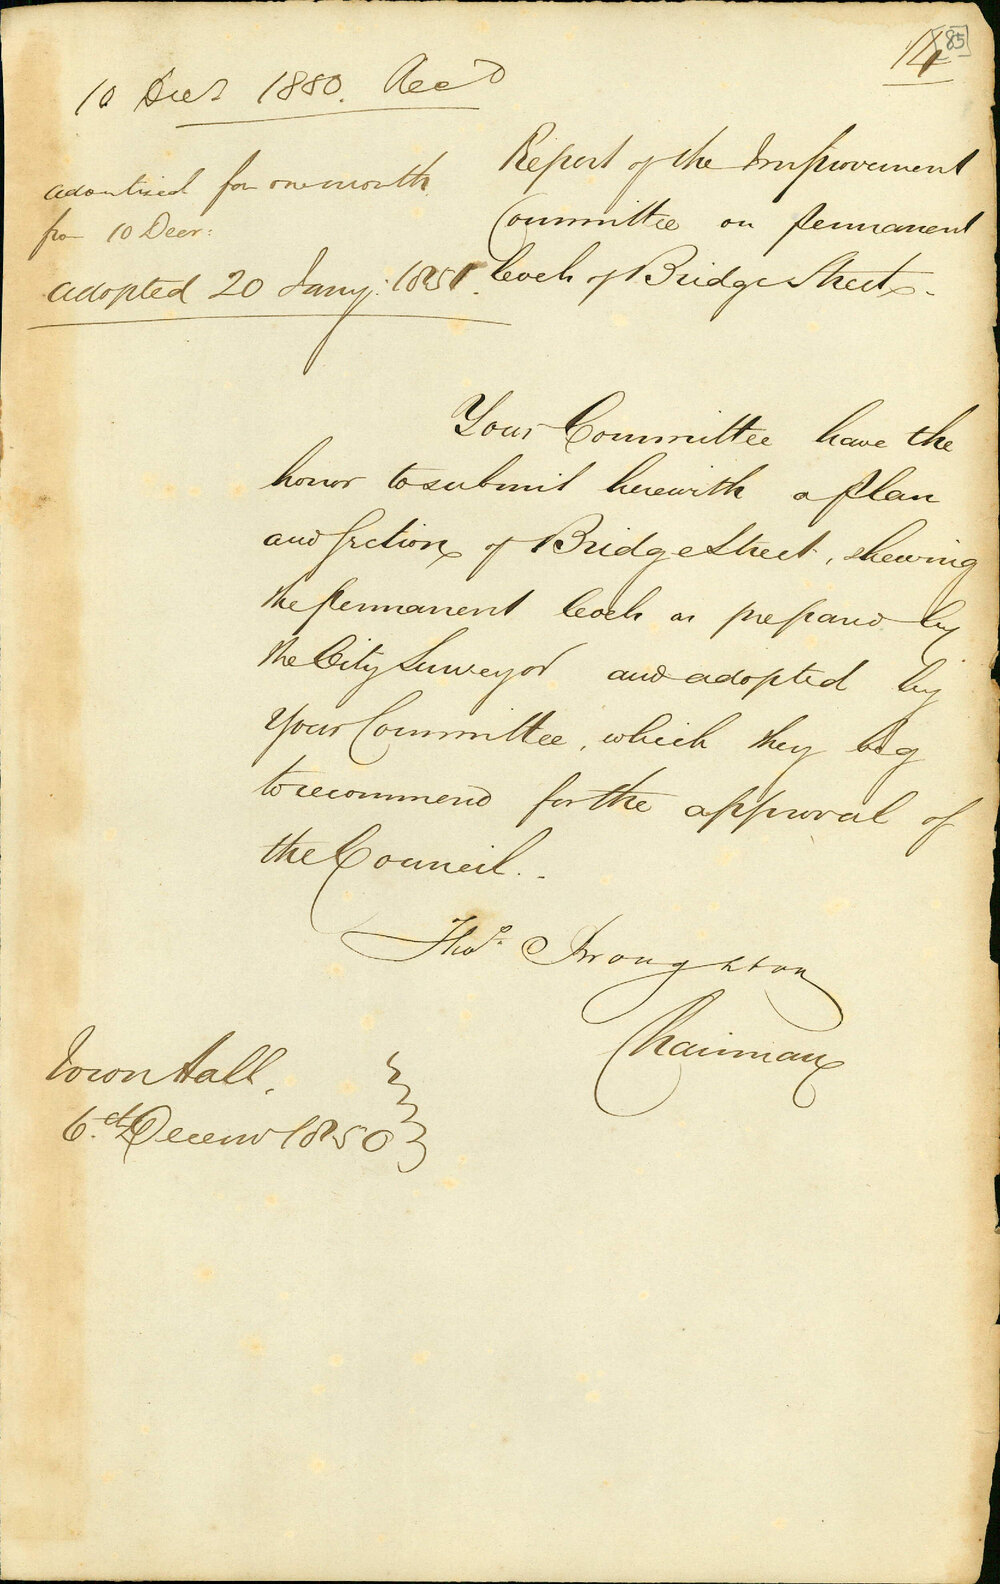 14
85
10 Decr 1850. Recd
advertised for one month
from 10 Decr:
adopted 20 Jany: 1851.
Report of the Improvement
Committee on permanent
levels of Bridge Street.
Your Committee have the
honor to submit herewith a plan
and section of Bridge Street, shewing
the permanent levels as prepared by
the City Surveyor and adopted by
Your Committee, which they beg
to recommend for the approval of
the Council.
Thos. Broughton
Chairman
Town Hall,
6th Decemr 1850